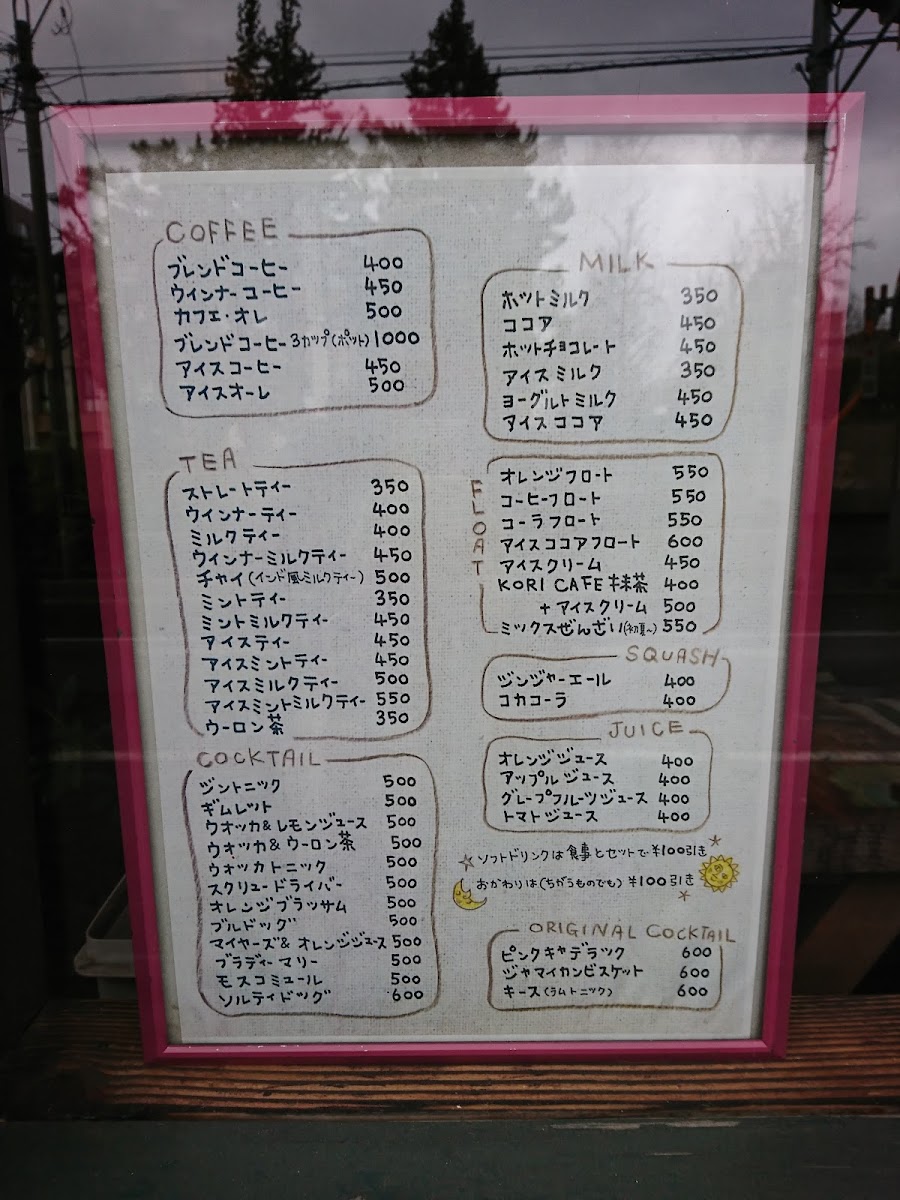 COFFEE
ブレンドコーヒー 400
ウインナーコーヒー 450
カフェ・オレ 500
ブレンドコーヒー3カップ(ポット) 1000
アイスコーヒー 450
アイスオーレ 500
TEA
ストレートティー 350
ウインナーティー 400
ミルクティー 400
ウインナーミルクティー 450
チャイ(インド風ミルクティー) 500
ミントティー 350
ミントミルクティー 450
アイスティー 450
アイスミントティー 450
アイスミルクティー 500
アイスミントミルクティー 550
ウーロン茶 350
COCKTAIL
ジントニック 500
ギムレット 500
ウオッカ&レモンジュース 500
ウオッカ&ウーロン茶 500
ウオッカトニック 500
スクリュードライバー 500
オレンジブラッサム 500
ブルドッグ 500
マイヤーズ&オレンジジュース 500
ブラディーマリー 500
モスコミュール 500
ソルティドッグ 600
MILK
ホットミルク 350
ココア 450
ホットチョコレート 450
アイスミルク 350
ヨーグルトミルク 450
アイスココア 450
FLOAT
オレンジフロート 550
コーヒーフロート 550
コーラフロート 550
アイスココアフロート 600
アイスクリーム 450
KORI CAFE 抹茶 400
+アイスクリーム 500
ミックスぜんざい(初夏〜) 550
SQUASH
ジンジャーエール 400
コカコーラ 400
JUICE
オレンジジュース 400
アップルジュース 400
グレープフルーツジュース 400
トマトジュース 400
ソフトドリンクは食事とセットで¥100引き
おかわりは(ちがうものでも)¥100引き
ORIGINAL COCKTAIL
ピンクキャデラック 600
ジャマイカンビスケット 600
キース(ラムトニック) 600